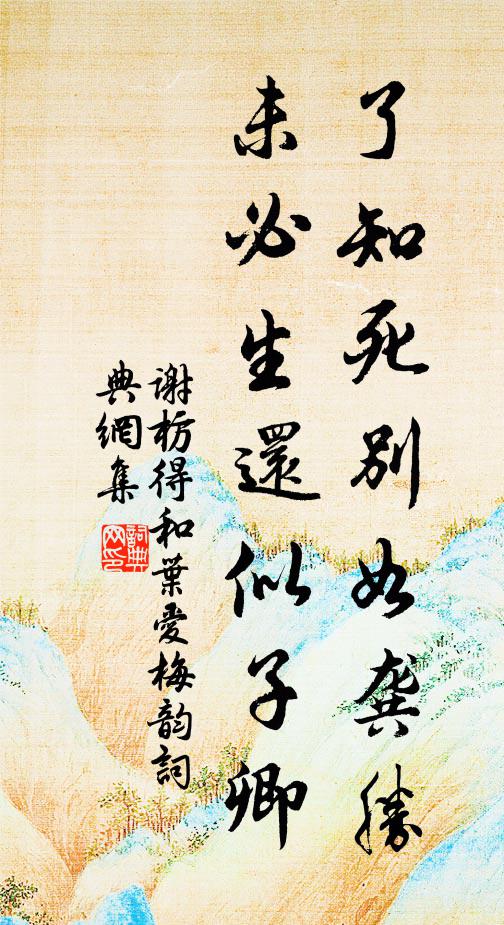 了知死別如龔勝
未必生還似子卿
謝枋得和葉愛梅韵詞
典網集
詞典